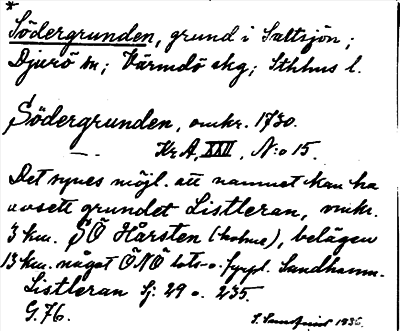 *
Södergrunden, grund i Saltsjön;
Djurö sn; Värmdö skg; Sthlms l.
Södergrunden, omkr. 1730.
Kr A, XXII, N:o 15.
Det synes möjl. att namnet kan ha
avsett grundet Listleran, omkr.
3 km. SÖ Hårsten (holme), belägen
13 km. något ÖNÖ lots- o. fyrpl. Sandhamn.
Listleran Sj. 29 o. 235.
G. 76.
1936.